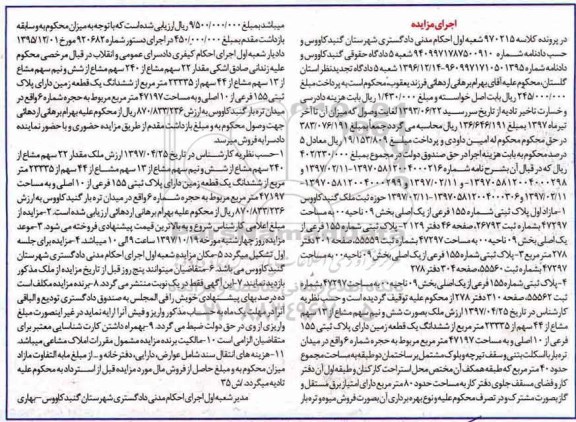 اجرای مزایده
در پرونده کلاسه ۹۷۰۲۱۵ شعبه اول اجرای احکام مدنی دادگستری شهرستان گنبد کاووس و
حسب دادنامه شماره ۹۴۰۹۹۷۱۷۸۷۵۰۰۹۱۰ شعبه ۵ دادگاه حقوقی گنبد کاووس و
دادنامه شماره ۹۶۰۹۹۷۱۷۱۰۵۰۱۳۹۵-۱۳۹۶/۱۲/۱۴ شعبه ۵ دادگاه تجدیدنظر استان
گلستان محکوم علیه آقای بهرام برهانی اردهائی فرزند یعقوب محکوم است به پرداخت مبلغ
۲۴۵/۰۰۰/۰۰۰ ریال بابت اصل خواسته و مبلغ ۱/۴۳۰/۰۰۰ ریال بابت هزینه دادرسی
و خسارت تاخیر تادیه از تاریخ سررسید ۱۳۹۳/۰۶/۲۲ لغایت وصول که میزان آن تا آخر
تیر ماه ۱۳۹۷ بمبلغ ۱۳۶/۶۴۶/۱۹۱ ریال محاسبه می گردد جمعا بمبلغ ۳۸۳/۰۷۶/۱۹۱
در حق محکوم له امین داودی و پرداخت مبلغ ۱۹/۱۵۳/۸۰۹ ریال معادل ۵
درصد محکوم به بابت هزینه اجرا در حق صندوق دولت در مجموع بمبلغ ۴۰۲/۲۳۰/۰۰۰
ریال که در قبال آن بشرح نامه شماره ۱۳۹۷۰۵۸۱۲۰۰۴۰۰۰۲۱۶-۱۳۹۷/۰۲/۱۱ و
۱۳۹۷۰۵۸۱۲۰۰۴۰۰۰۲۹۸-۱۳۹۷/۰۲/۱۱ و ۱۳۹۷۰۵۸۱۲۰۰۴۰۰۰۲۹۹-
۱۳۹۷/۰۲/۱۱ و ۱۳۹۷۰۵۸۱۲۰۰۴۰۰۰۳۰۶-۱۳۹۷/۰۲/۱۱ حوزه ثبت ملک گنبد کاووس
۱-مازاد اول پلاک ثبتی شماره ۱۵۵ فرعی از یک اصلی بخش ۰۹ ناحیه ۰۰ به مساحت
۴۷۲۹۷ بشماره ثبت ۲۶۷۹۳ صفحه ۴۶ دفتر ۱۲۹ ۲-پلاک ثبتی شماره ۱۵۵ فرعی از
یک اصلی بخش ۰۹ ناحیه ۰۰ به مساحت ۴۷۲۹۷ بشماره ثبت ۵۵۵۵۹ صفحه ۳۰۱ دفتر
۲۷۸ متر مربع ۳-پلاک ثبتی شماره ۱۵۵ فرعی از یک اصلی بخش ۰۹ ناحیه ۰۰ به مساحت
۴۷۲۹۷ بشماره ثبت ۵۵۵۶۰ صفحه ۳۰۴ دفتر ۲۷۸
۴-پلاک ثبتی شماره ۱۵۵ فرعی از یک اصلی بخش ۰۹ ناحیه ۰۰ به مساحت ۴۷۲۹۷ بشماره
ثبت ۵۵۵۶۲ صفحه ۳۱۰ دفتر ۲۷۸ از محکوم علیه توقیف گردیده است و حسب نظریه
کارشناس در تاریخ ۱۳۹۷/۰۴/۲۵ ارزش ملک بصورت شش و نیم سهم مشاع از ۱۳ سهم
مشاع از ۴۴ سهم از ۲۳۳۳۵ متر مربع از ششدانگ یک قطعه زمین دارای پلاک ثبتی ۱۵۵
فرعی از ۱۰ اصلی و به مساحت ۴۷۱۹۷ متر مربع مربوط به حجره شماره ۶ واقع در میدان
تره بار با اسکلت بتنی و سقف تیرچه و بلوک مشتمل بر ساختمان دو طبقه به مساحت مجموع
حدود ۴۰ متر مربع که طبقه همکف آن مختص محل استراحت کارکنان و طبقه اول آن دفتر
کار و فضای مسقف جلوی دفتر کار به مساحت حدود ۸۰ متر مربع دارای امتیاز برق مستقل و
گاز بصورت مشترک و در تصرف محکوم علیه و نوع بهره برداری آن بصورت فروش میوه و تره بار
میباشد بمبلغ ۹/۵۰۰/۰۰۰/۰۰۰ ریال ارزیابی شده است که با توجه به میزان محکوم به و سابقه
بازداشت مقدم بمبلغ ۴۵۰/۰۰۰/۰۰۰ در اجرای دستور شماره ۹۲۰۶۸۲ مورخ ۱۳۹۵/۱۲/۰۱
دادیار شعبه اول اجرای احکام کیفری دادسرای عمومی و انقلاب در قبال مرخصی محکوم
علیه زندانی صادق اشکی مقدار ۲۲ سهم مشاع از ۲۴۰ سهم مشاع از شش و نیم سهم مشاع
از ۱۳ سهم مشاع از ۴۴ سهم از ۲۳۳۳۵ متر مربع از ششدانگ یک قطعه زمین دارای پلاک
ثبتی ۱۵۵ فرعی از ۱۰ اصلی و به مساحت ۴۷۱۹۷ متر مربع مربوط به حجره شماره ۶ واقع در
میدان تره بار گنبد کاووس به ارزش ۸۷۰/۸۳۳/۲۳۶ ریال از محکوم علیه بهرام برهانی اردهائی
جهت وصول محکوم به و مبلغ بازداشت مقدم از طریق مزایده حضوری و با حضور نماینده
دادسرا به فروش میرسد
۱-حسب نظریه کارشناس در تاریخ ۱۳۹۷/۰۴/۲۵ ارزش ملک مقدار ۲۲ سهم مشاع از
۲۴۰ سهم مشاع از شش و نیم سهم مشاع از ۱۳ سهم مشاع از ۴۴ سهم از ۲۳۳۳۵ متر
مربع از ششدانگ یک قطعه زمین دارای پلاک ثبتی ۱۵۵ فرعی از ۱۰ اصلی و به مساحت
۴۷۱۹۷ متر مربع مربوط به حجره شماره ۶ واقع در میدان تره بار گنبد کاووس به ارزش
۸۷۰/۸۳۳/۲۳۶ ریال از محکوم علیه بهرام برهانی اردهائی ارزیابی شده است. ۲-مزایده از
مبلغ اعلامی کارشناس شروع و به بالاترین قیمت پیشنهادی فروخته می شود. ۳-موعد
مزایده روز چهارشنبه مورخ ۱۳۹۷/۱۰/۱۹ ساعت ۹ الی ۱۰ میباشد ۴-مزایده برای جلسه
اول تشکیل میگردد ۵-مکان مزایده شعبه اول اجرای احکام مدنی دادگستری شهرستان
گنبد کاووس می باشد ۶-متقاضیان میتوانند پنج روز قبل از تاریخ مزایده از ملک مذکور
بازدید نمایند ۷-این آگهی فقط در یک نوبت منتشر می گردد ۸-برنده مزایده مکلف است
ده درصد بهای پیشنهادی خویش را فی المجلس به صندوق دادگستری تودیع و الباقی
آنرا ظرف یک ماه به حساب مذکور واریز و فیش آنرا ارایه نماید در غیر اینصورت مبلغ
واریزی از وی در حق دولت ضبط می گردد. ۹-بهمراه داشتن کارت شناسایی معتبر برای
متقاضیان الزامی است ۱۰-مالکیت برنده مزایده مشمول مقررات املاک مشاعی میباشد
۱۱-هزینه های انتقال سند شامل عوارض، دارایی، دفتر خانه و... از مبلغ مابه التفاوت مازاد
میزان محکوم به و مبلغ حاصل از فروش مال مورد مزایده قبل از استرداد به محکوم علیه
تادیه میگردد. ش ۳۵
مدیر شعبه اول اجرای احکام مدنی دادگستری شهرستان گنبد کاووس - بهاری